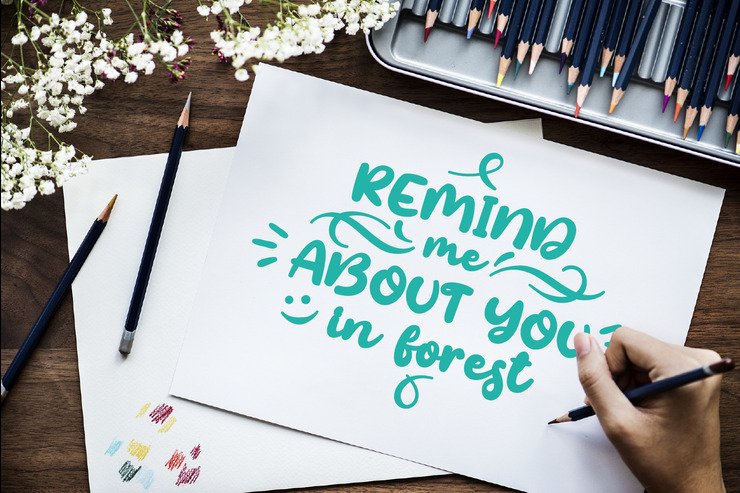 REMIND
me
ABOUT YOU
in forest